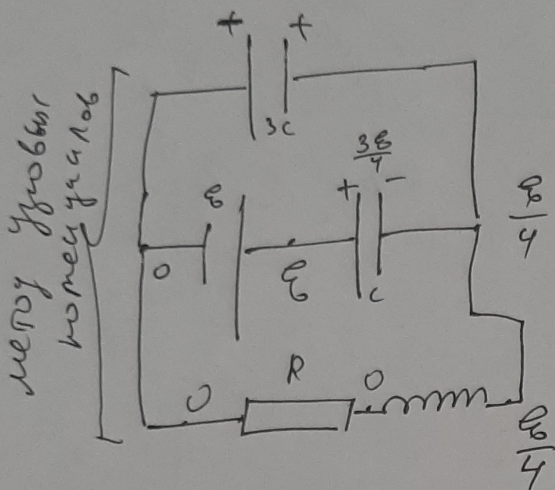 метод узловых
потенциалов
+ +
3C
3ℰ/4
ℰ + -
ℰ/4
0 ℰ C
R
0 0
ℰ/4